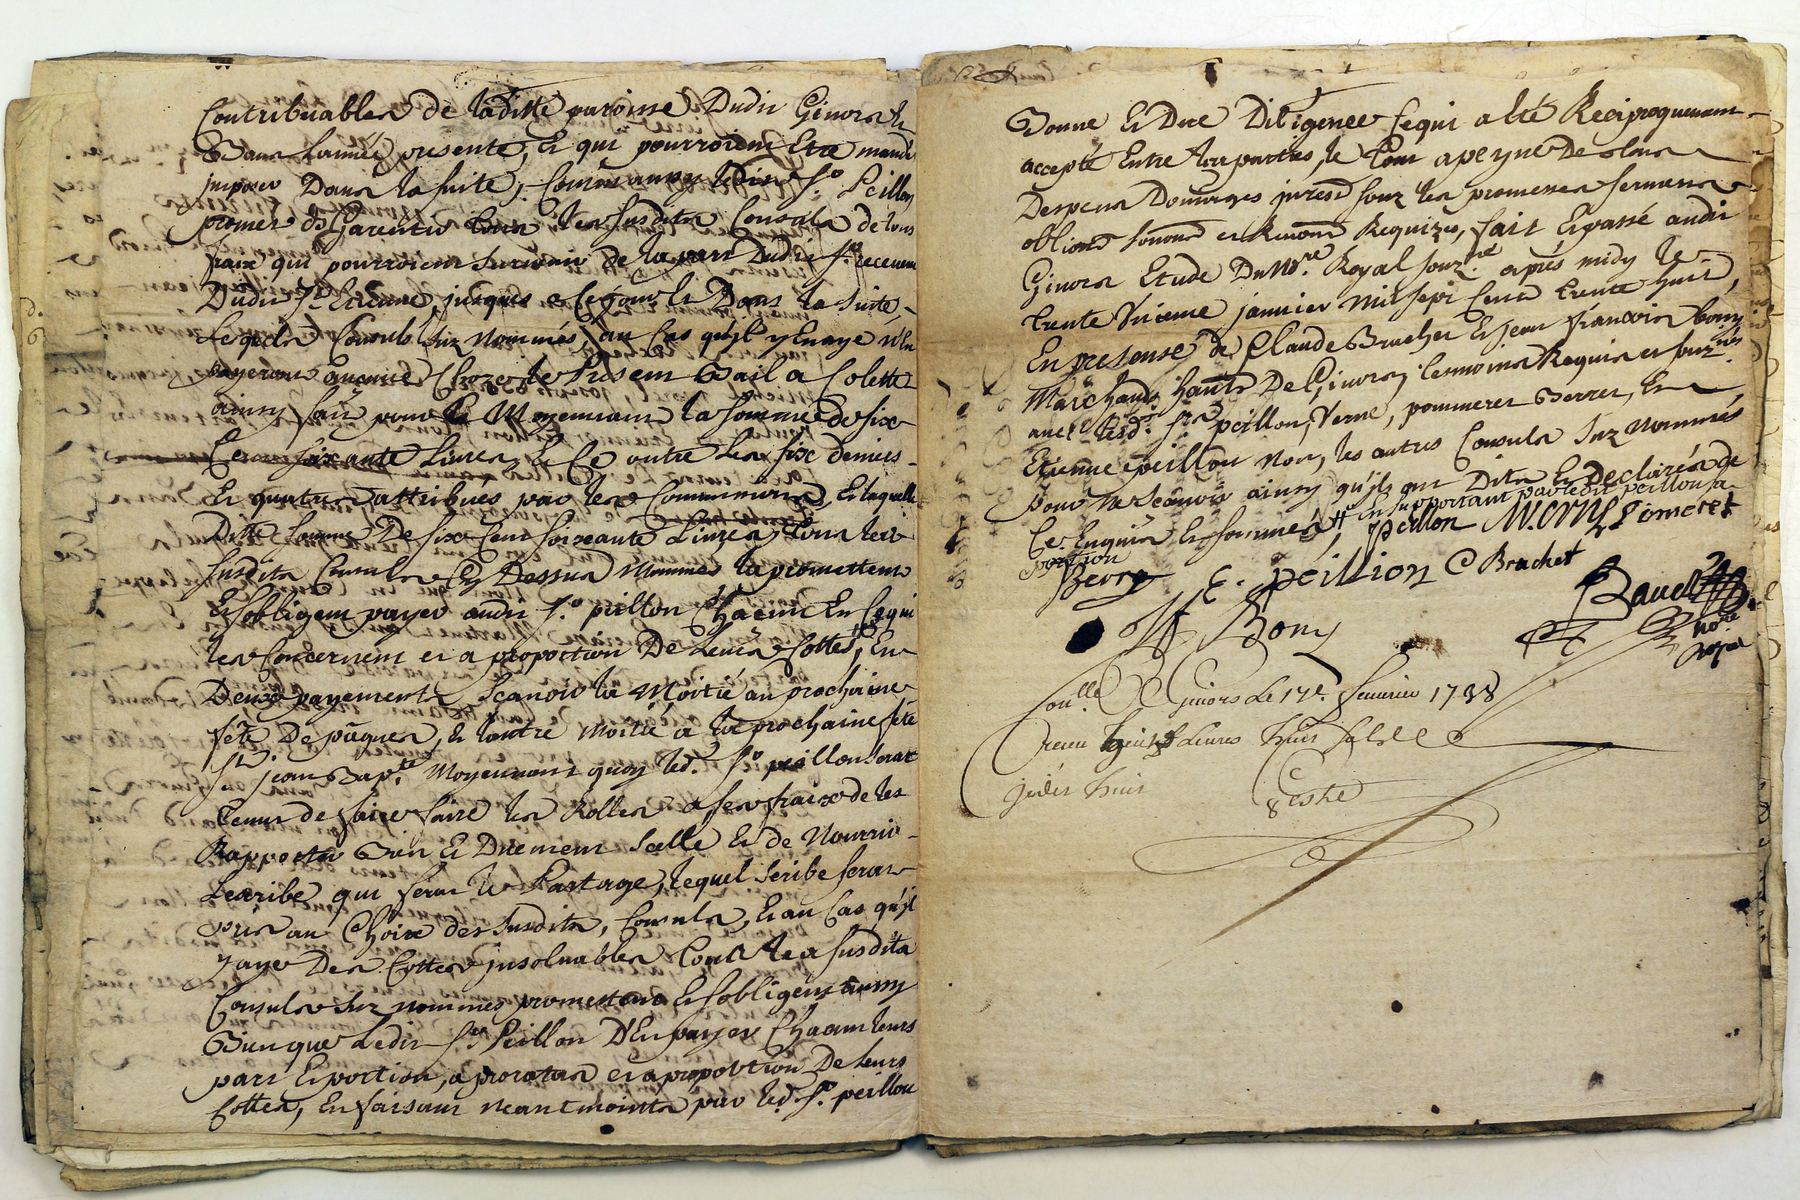 Contribuables de laditte paroisse Dudit Givors Et
Dans Lannée presente, Et qui pourroient Etre mandé
imposer Dans la suite, Comme aussy ledit Sr. Peillon
promet de Garentir tous les susdits Consuls de tous
fraix qui pourroient survenir de la part Dudit Sr. receveur
Dudit St. Etienne, jusques a Ce jour Et Dans la suite
Lesquels Consuls suz nommés, au Cas qu'jl y En aye n'En
payeront aucune Choze le Present Bail a Colette
ainsy fait pour Et Moyennant la somme de six
Cent soixante Livres, Et Ce outre Les six deniers
Et quatrins attribues par les Commissions, Et laquelle
Ditte somme De six Cent soixante Livres, tous les
susdits Consuls Cy Dessus Nommés la promettent
Et sobligent payer audit Sr. peillon Chacun En Ce qui
les Concernent et a proportion De Leurs Cottes, En
Deux payements, Scavoir la Moitié au prochaine
fête De pâques, Et lautre Moitié a la prochaine fête
St. jean Bapte. Moyennant quoy led. Sr. peillon serat
tenus de faire faire les Rolles a ses fraix de les
Rapporter Bon Et Duement scellé Et de Nourrir
Lescribe qui ferat le Partage, lequel scribe serat
pris au Choix des susdits, Consuls, Et au Cas qu'jl
y aye Des Cottes jnsoluables tous les susdits
Consuls suz nommés promettent Et sobligent aussy
Bien que Ledit Sr. Peillon D'En payer Chacun leurs
part Et portion, a prorata et a proportion De leurs
Cottes, En faisant neantmoints par led. Sr. peillon
Bonne Et Due Diligence Ce qui a Eté Reciproquement
accepté Entre les parties, le tout a peyne De tous
Despens Domages jnterest souz les promesses serments
oblions. soumons. et Renons. Requizes, fait Et passé audit
Givors Etude Du Nore. Royal souzne. aprés midy le
trente Unieme janvier Mil sept Cent trente huit,
En presense de Claude Brachet Et jean francois bony
Marchands habts. De Givors, tesmoins Requis et souznés.
avec lesd. Srs. peillon, Verne, pommeret Berry, Et
Etienne peillon Non, les autres Consuls suz nommés
pour ne Scavoir ainsy qu'ils ont Dits Et Declarés de
Ce Enquis Et sommés, # En suportant par ledit peillon sa
portion Peillon Pomeret
Berry E. peillion C Brachet
Bony nore
Royal
Conllé. A Givors Le 17e. fevrier 1738
recu Livres huit sols